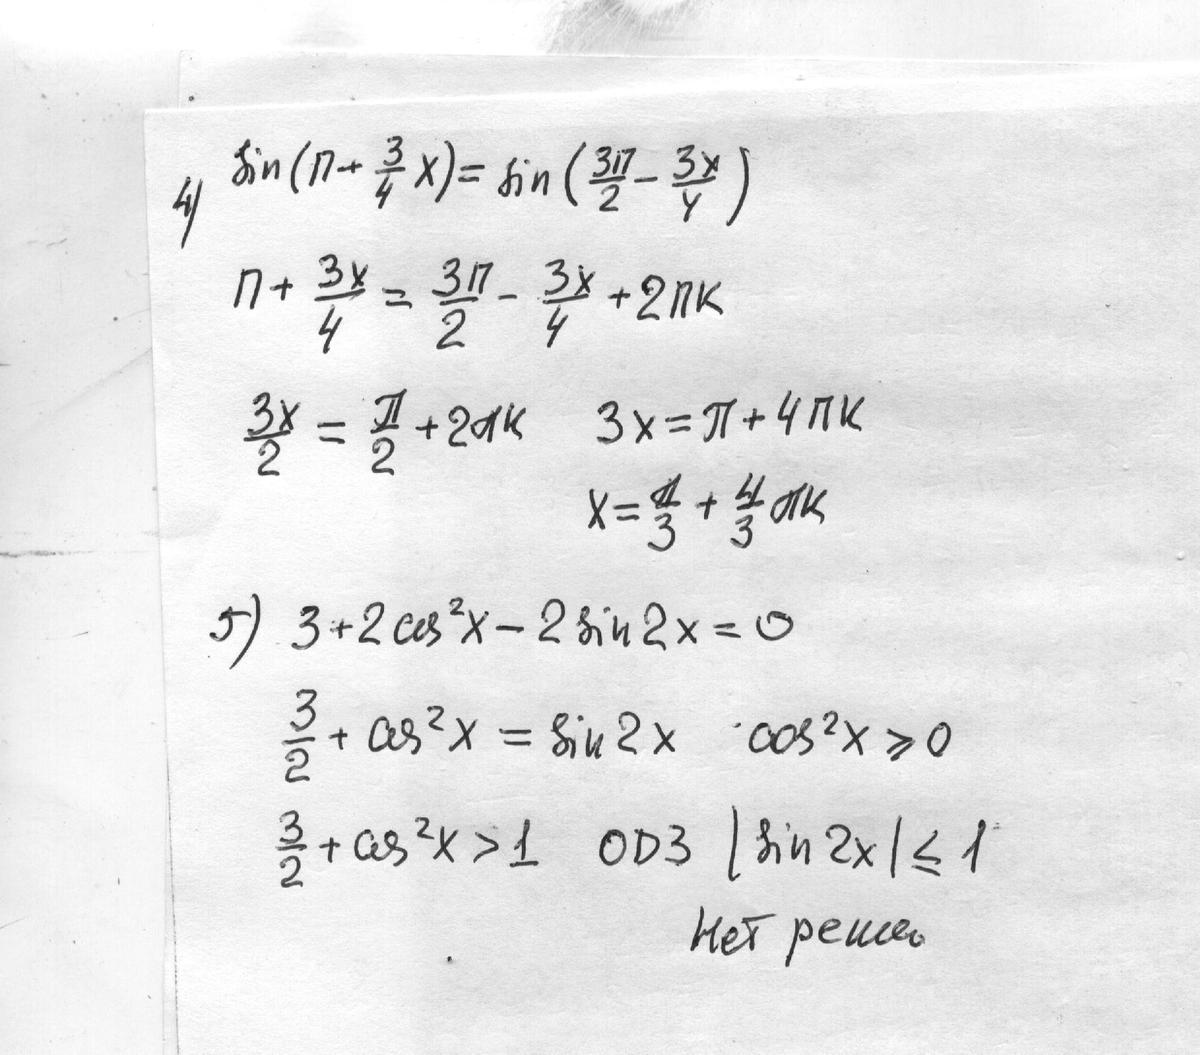 4) sin(π + 3/4 x) = sin(3π/2 - 3x/4)
π + 3x/4 = 3π/2 - 3x/4 + 2πк
3x/2 = π/2 + 2πк   3x = π + 4πк
x = π/3 + 4/3 πк
5) 3 + 2cos²x - 2sin2x = 0
3/2 + cos²x = sin2x   cos²x ⩾ 0
3/2 + cos²x > 1   ОДЗ |sin2x| ≤ 1
Нет